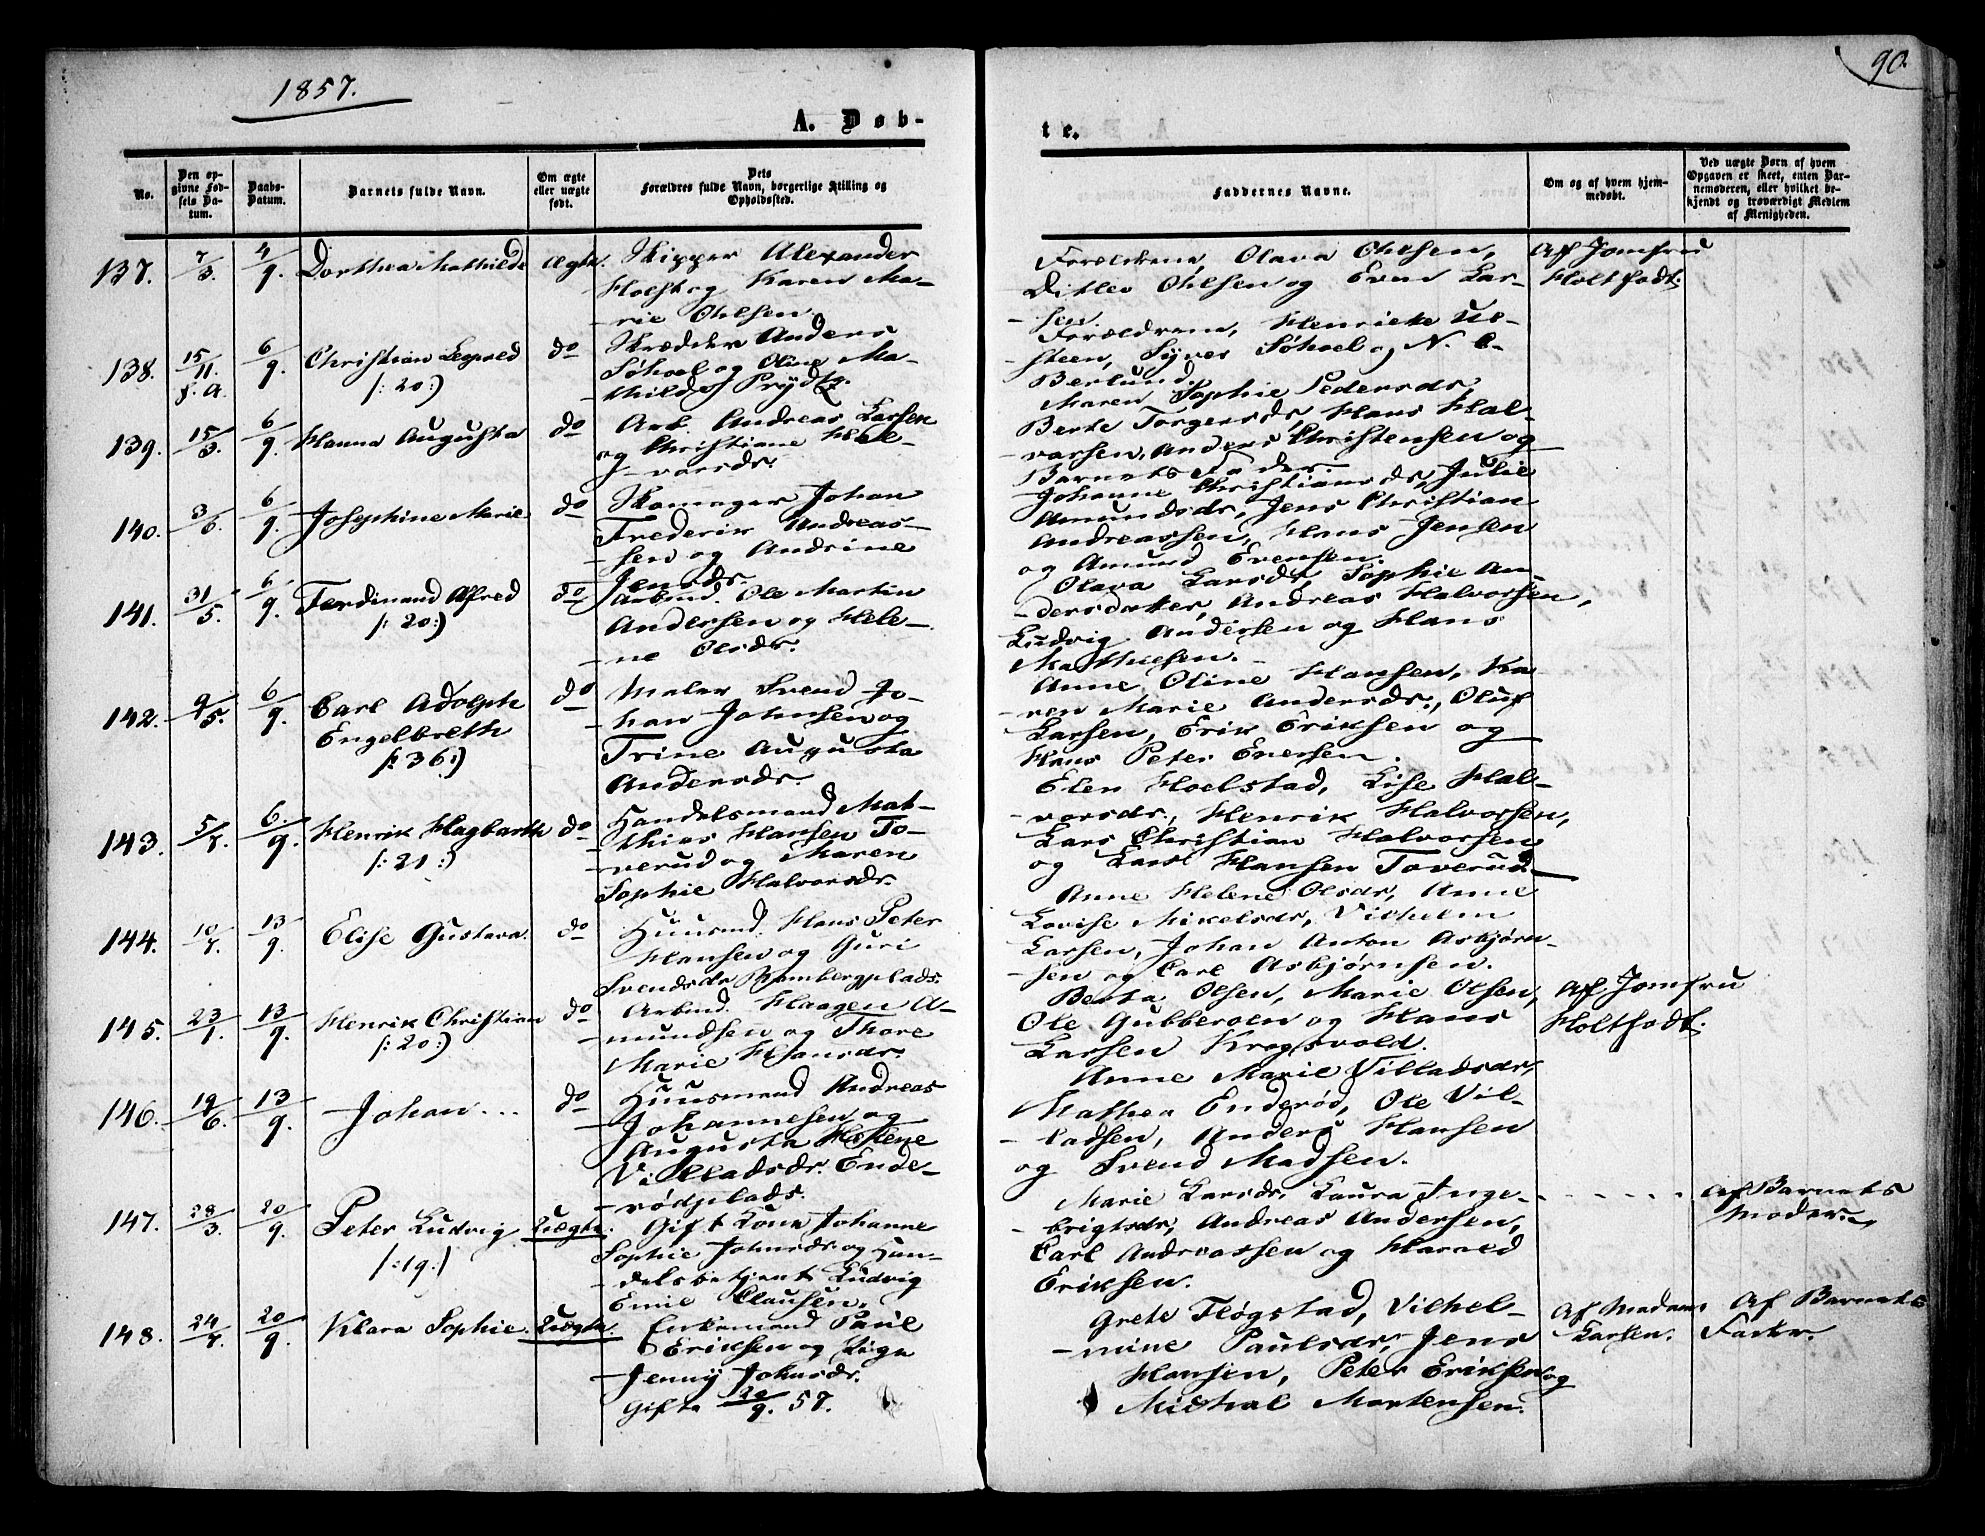 1857.
90.
A. Døb-
te.
No.
Den op-
givne Fød-
sels Da-
tum.
Daabs-
Datum.
Barnets fulde Navn.
Om ægte
eller uægte
født.
Dets
Forældres fulde Navn, borgerlige Stilling og
Opholdssted.
Faddernes Navne.
Om og af hvem hjem-
medøbt.
Ved uægte Børn af hvem
Opgaven er skeet, enten Bar-
nemoderen, eller hvilket be-
kjendt og troværdigt Medlem
af Menigheden.
137. 7/3. 4/9. Dorthea Mathilde Ægte. Skipper Alexander
Holst og Karen Ma-
rie Ohlsen.
Forældrene, Olava Ohlsen,
Ditlev Ohlsen og Even Lar-
sen.
Af Jomfru
Holtfodt.
138. 15/11. f. A. 6/9. Christian Leopold
/: 20:)
do Skrædder Anders
Søhoel og Oline Ma-
thilde Prydtz.
Forældrene, Henriette
-steen, Syver Søhoel og N. C.
Berlund.
139. 15/3. 6/9. Hanna Augusta do Arb. Andreas Larsen
og Christiane Hal-
vorsdr.
Maren Sophie Pedersdr,
Berte Torgersdr, Hans Hal-
varsen, Anders Christensen og
Barnets Fader.
140. 3/6. 6/9. Josephine Marie do Skomager Johan
Frederik Andreas-
sen og Andrine
Jensdr.
Johanne Christiansdr, Julie
Amundsdr, Jens Christian
Andreassen, Hans Jensen
og Amund Evensen.
141. 31/5. 6/9. Ferdinand Alfred
/: 20:)
do Arbmd. Ole Martin
Andersen og Hele-
ne Olsdr.
Olava Larsdr, Sophie An-
dersdatter, Andreas Halvorsen,
Ludvig Andersen og Hans
Mathiesen.
142. 9/5. 6/9. Carl Adolph
Engelbreth
/: 36:)
do Maler Svend Jo-
han Johnsen og
Trine Augusta
Andersdr.
Anne Oline Hansen, Ka-
ren Marie Andersdr., Oluf
Larsen, Erik Eriksen og
Hans Peter Evensen.
143. 5/7. 6/9. Henrik Hagbarth
/: 21:)
do Handelsmand Mat-
thias Hansen To-
verud og Maren
Sophie Halvorsdr.
Elen Hoelstad, Lise Hal-
vorsdr., Henrik Halvorsen,
Lars Christian Halvorsen
og Carl Hansen Toverud.
144. 10/7. 13/9. Elise Gustava. do Huusmd. Hans Peter
Hansen og Guri
Svendsdr Rambergplads.
Anne Helene Olsdr, Anne
Lovise Mikelsdr, Vilhelm
Larsen, Johan Anton Asbjørn-
sen og Carl Asbjørnsen.
145. 23/1. 13/9. Henrik Christian
/: 20:)
do Arbmd. Haagen A-
mundsen og Thore
Marie Hansdr.
Berta Olsen, Marie Olsen,
Ole Gubberoen og Hans
Larsen Krogsvold.
Af Jomfru
Holtfodt.
146. 19/6. 13/9. Johan... do Huusmand Andreas
Johannesen og
Augusta Helene
Villadsdr. Ende-
rødplads.
Anne Marie Villadsdr,
Mathea Enderød, Ole Vil-
ladsen, Anders Hansen
og Svend Madsen.
147. 28/3. 20/9. Peter Ludvig
/: 19:)
Uægte Gift Kone Johanne
Sophie Johnsdr og Han-
delsbetjent Ludvig
Emil Clausen.
Marie Larsdr, Laura Inge-
brigtsdr, Andreas Andersen,
Carl Andreassen og Harald
Eriksen.
Af Barnets
Moder.
148. 24/7. 20/9. Klara Sophie. Uægte. Enkemand Paul
Eriksen og Pige
Jenny Johnsdr.
Gifte 20/9. 57.
Grete Fløgstad, Vilhel-
mine Paulsdr, Jens
Hansen, Peter Eriksen og
Michal Mortensen.
Af Madam
Larsen.
Af Barnets
Fader.